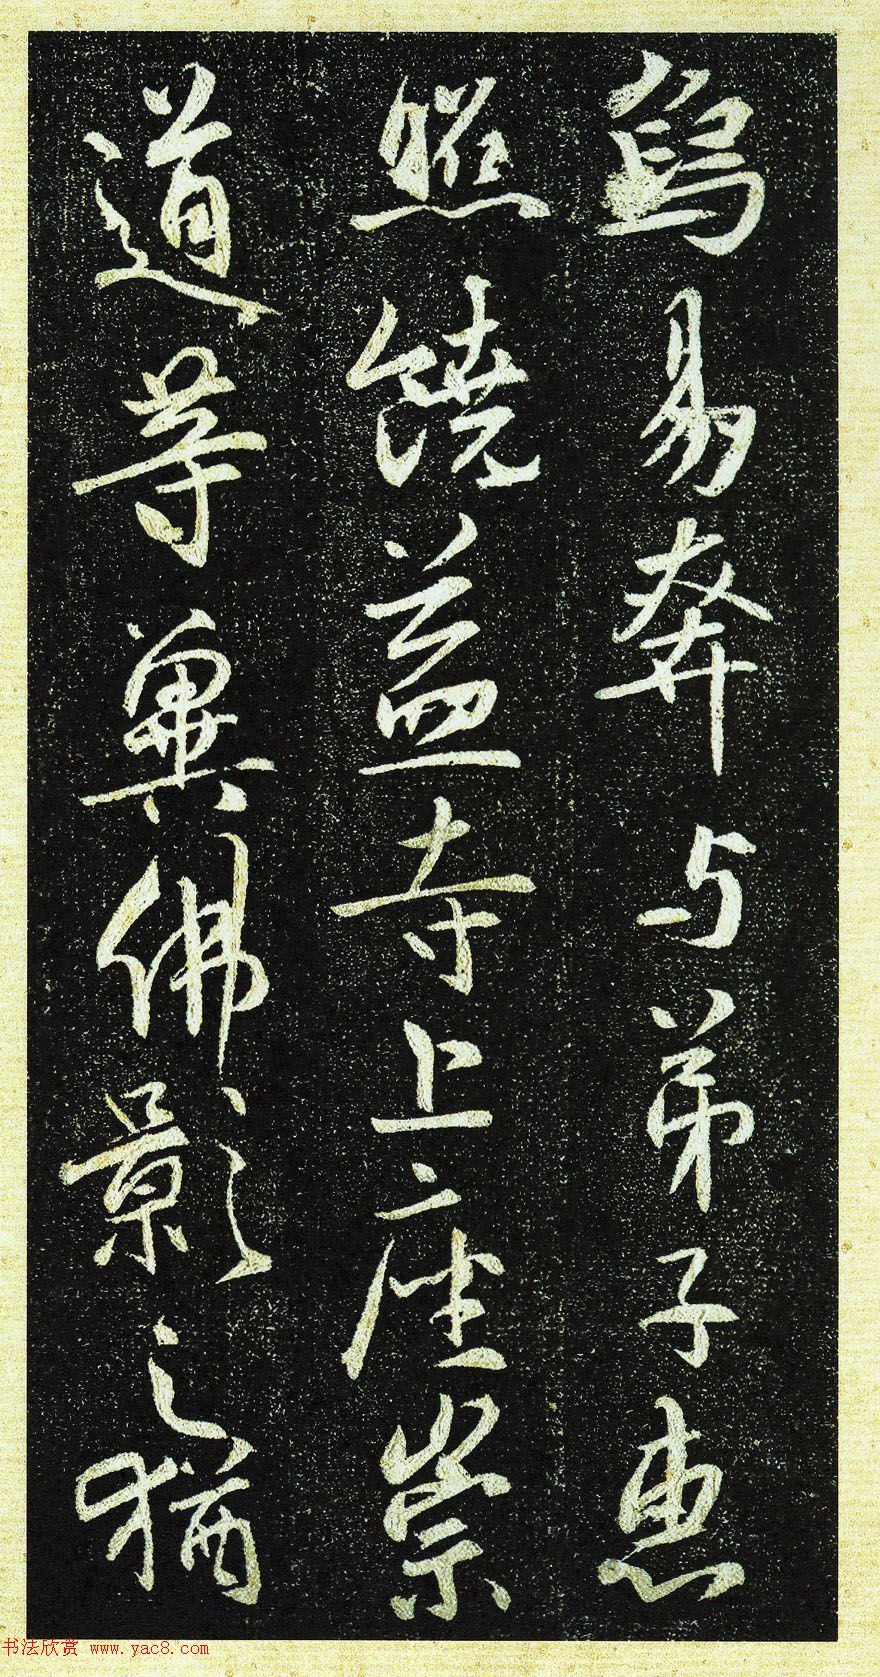 舄易奔与弟子惠
照饒益寺上座崇
道等冀佛影之猶
书法欣赏 www.yac8.com